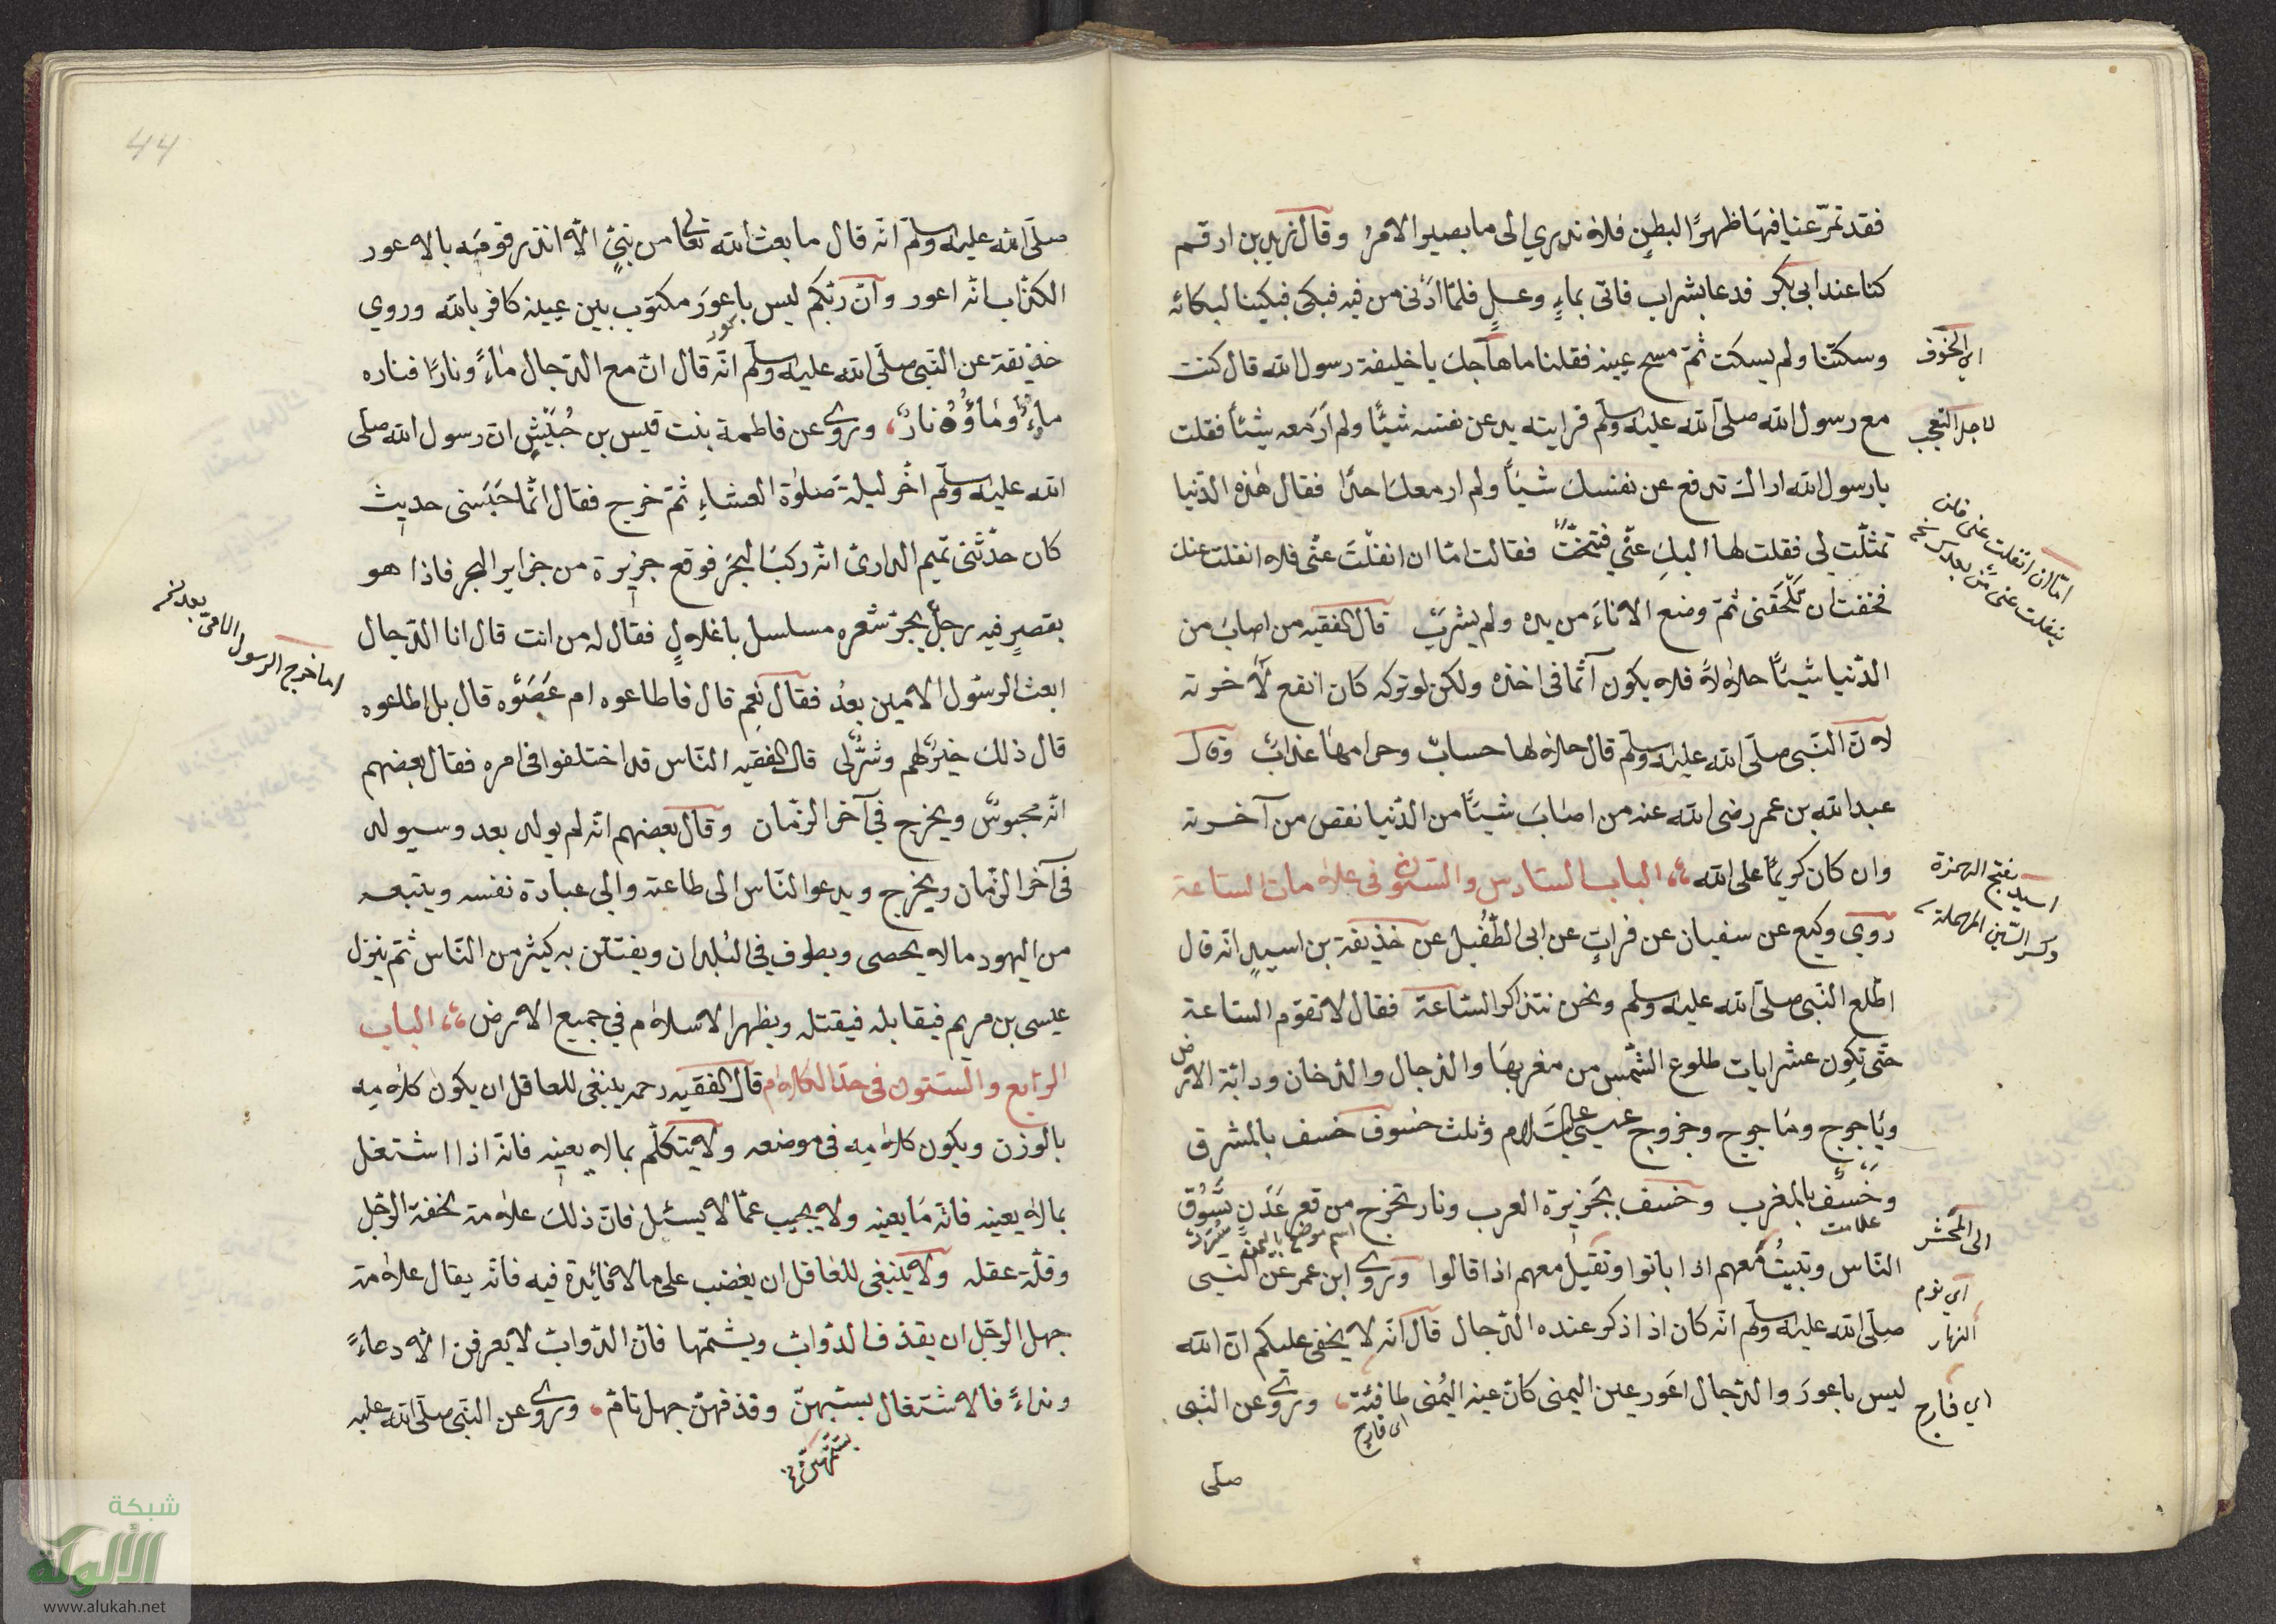 فقد تمرّ عنا فيها ظهرًا لبطنٍ فلا ندري الى ما يصير الامرُ وقال زيد بن ارقم
كنا عند ابى بكر فدعا بشراب فاتى بماءٍ وعسلٍ فلمّا ادنى من فيه فبكى فبكينا لبكائه
وسكتنا ولم يسكت ثمّ مسح عينه فقلنا ما هاجك يا خليفة رسول الله قال كنت
اي الخوف
مع رسول الله صلّى الله عليه وسلّم فرايته يدع عن نفسه شيئًا ولم ار معه شيئًا فقلت
لاجل التعجب
يا رسول الله اراك تدفع عن نفسك شيئًا ولم ار معك احدًا فقال هٰذه الدّنيا
تمثّلت لى فقلت لها اليكِ عنّي فتنحّت فقالت امّا ان انفلتَّ عنّى فلا انفلت عنك
امّا ان انفلت عنى فلن
ينفلت عنى من بعدك نسخه
فخفت ان تلحقنى ثمّ وضع الاناءَ من يده ولم يشربْ قال الفقيه من اصاب من
الدّنيا شيئًا حلالاً فلا يكون آثمًا فى اخذه ولكن لو تركه كان انفع لآخرته
لانّ النّبى صلّى الله عليه وسلّم قال حلالها حسابٌ وحرامها عذابٌ وقال
عبد الله بن عمر رضى الله عنه من اصابَ شيئًا من الدّنيا نقص من آخرته
وان كان كريمًا على الله الباب السادس والستون فى علامات الساعة
اسيد بفتح الهمزة
وكسر السّين المهملة
روي وكيع عن سفيان عن فراتٍ عن ابى الطّفيل عن حذيفة بن اسيدٍ انه قال
اطّلع النّبى صلّى الله عليه وسلّم ونحن نتذاكر السّاعة فقال لا تقوم السّاعة
حتّى تكون عشر ايات طلوع الشّمس من مغربها والدّجال والدّخان ودابّة الارض
وياجوج وماجوج وخروج عيسى عليه السّلام وثلث خسوف خسف بالمشرق
وخسف بالمغرب وخسف بجزيرة العرب ونار تخرج من قعر عدنٍ تسوُق
الى المحشر
علامت
اسم موضع باليمن
النّاس وتبيتُ معهم اذا باتوا وتقيل معهم اذا قالوا وروى ابن عمر عن النّبى
اى نوم
النهار
صلّى الله عليه وسلّم انّه كان اذا ذكر عنده الدّجال قال انّه لا يخفى عليكم انّ الله
ليس باعورَ والدّجال اعور عين اليمنى كانّ عينه اليُمنى طافئة وروى عن النّبى
اي فارج
اى فارج
صلّى
44
صلّى الله عليه وسلّم انّه قال ما بعث الله تعالى من نبىٍّ الاّ انذر قومَه بالاعور
الكذّاب انّه اعور وانّ ربّكم ليس باعورَ مكتوب بين عينيه كافر بالله وروي
حذيفة عن النّبى صلّى الله عليه وسلّم انّه قال انّ مع الدّجال ماءً ونارًا فناره
ماءٌ وماؤُه نارٌ وروى عن فاطمة بنت قيس بن حُبَيْشٍ ان رسول الله صلّى
الله عليه وسلّم اخّر ليلة صلوٰة العشاءِ ثمّ خرج فقال انّما حَبَسَنى حديث
كان حدّثنى تميم الدارىّ انّه ركب البحرَ فوقع جزيرة من جزاير البحر فاذا هو
بقصرٍ فيه رجلٌ يجرّ شعره مسلسل باغلالٍ فقال له من انت قال انا الدّجال
اما خرج الرسول الامّى بعد نسخه
ابعث الرسول الامين بعدُ فقال نعم قال فاطاعوه ام عَصَوْه قال بل اطاعوه
قال ذلك خيرٌ لهم وشرٌّ لى قال الفقيه النّاس قد اختلفوا فى امره فقال بعضهم
انّه محبوسٌ ويخرج فى آخر الزّمان وقال بعضهم انّه لم يولد بعد وسيولد
فى آخر الزّمان ويخرج ويدعو النّاس الى طاعته والى عبادة نفسه ويتبعه
من اليهود ما لا يحصى ويطوف فى البُلدان ويفتتن به كثير من النّاس ثمّ ينزل
عيسى بن مريم فيقابله فيقتله ويظهر الاسلام في جميع الارض الباب
الرّابع والستّون فى حدّ الكلام قال الفقيه رحمه ينبغى للعاقل ان يكون كلامه
بالوزن ويكون كلامه فى موضعه ولا يتكلّم بما لا يعنيه فانّه اذا اشتغل
بما لا يعنيه فاته ما يعنيه ولا يجيب عمّا لا يسئل فانّ ذلك علامة لخفة الرّجل
وقلّة عقله ولا ينبغى للعاقل ان يغضب على ما لا فائدة فيه فانّه يقال علامة
جهل الرّجل ان يقذف الدّوابّ ويشتمها فانّ الدّوابّ لا يعرفن الاّ دعاءً
ونداءً فالاشتغال بسبّهنّ وقذفهنّ جهل تامّ وروى عن النّبى صلّى الله عليه
بشتمهنّ نسخه
شبكة
الألوكة
www.alukah.net